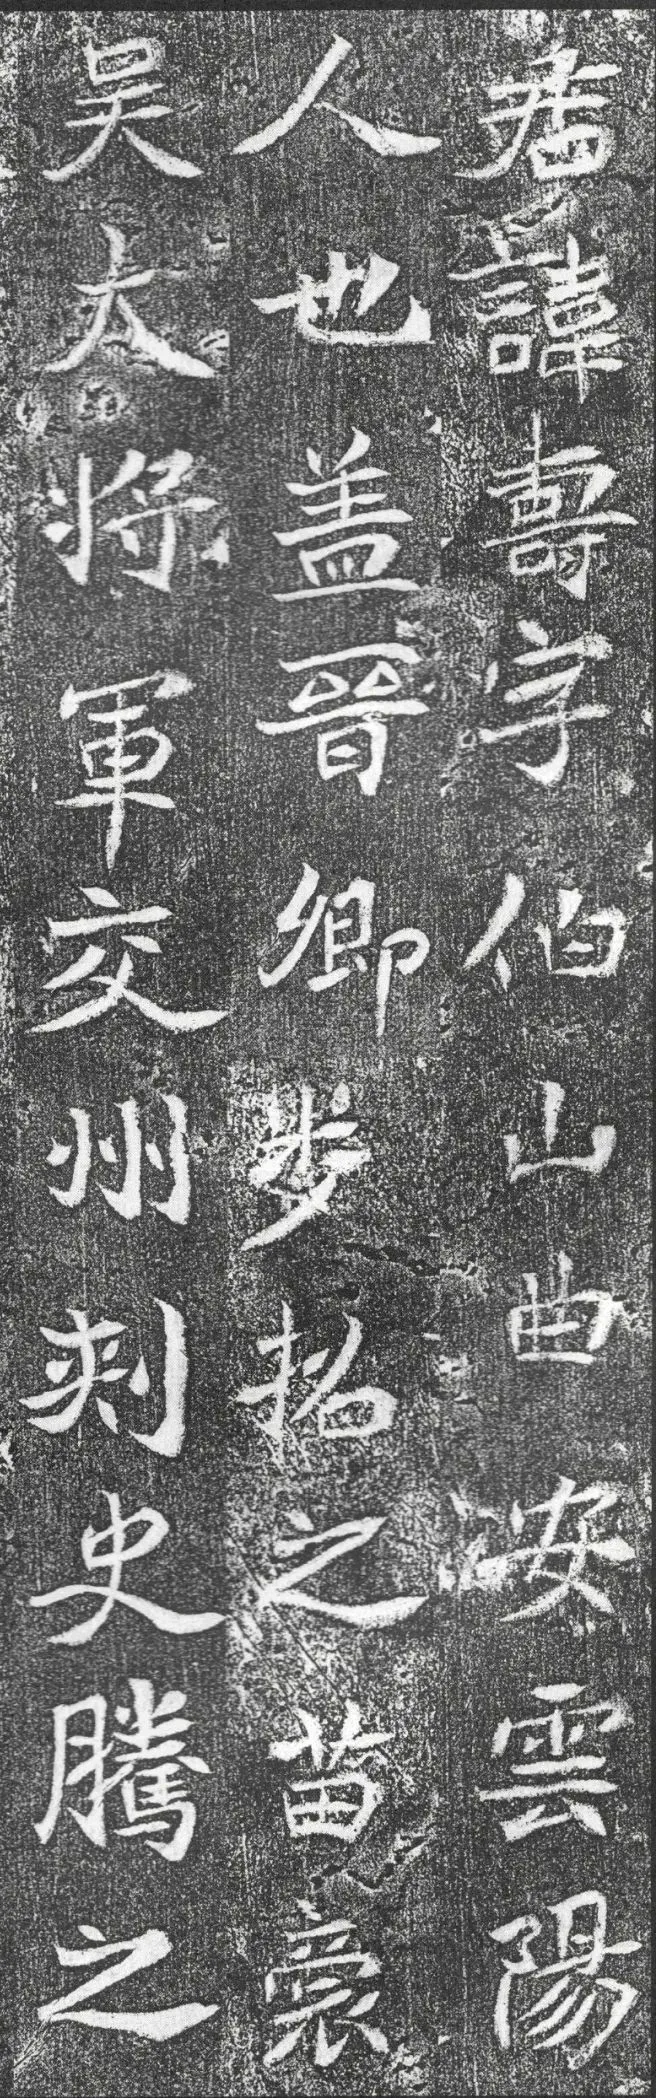 君諱壽字伯山曲安雲陽
人也盖晉卿步招之苗裔
吴大將軍交州刺史騰之